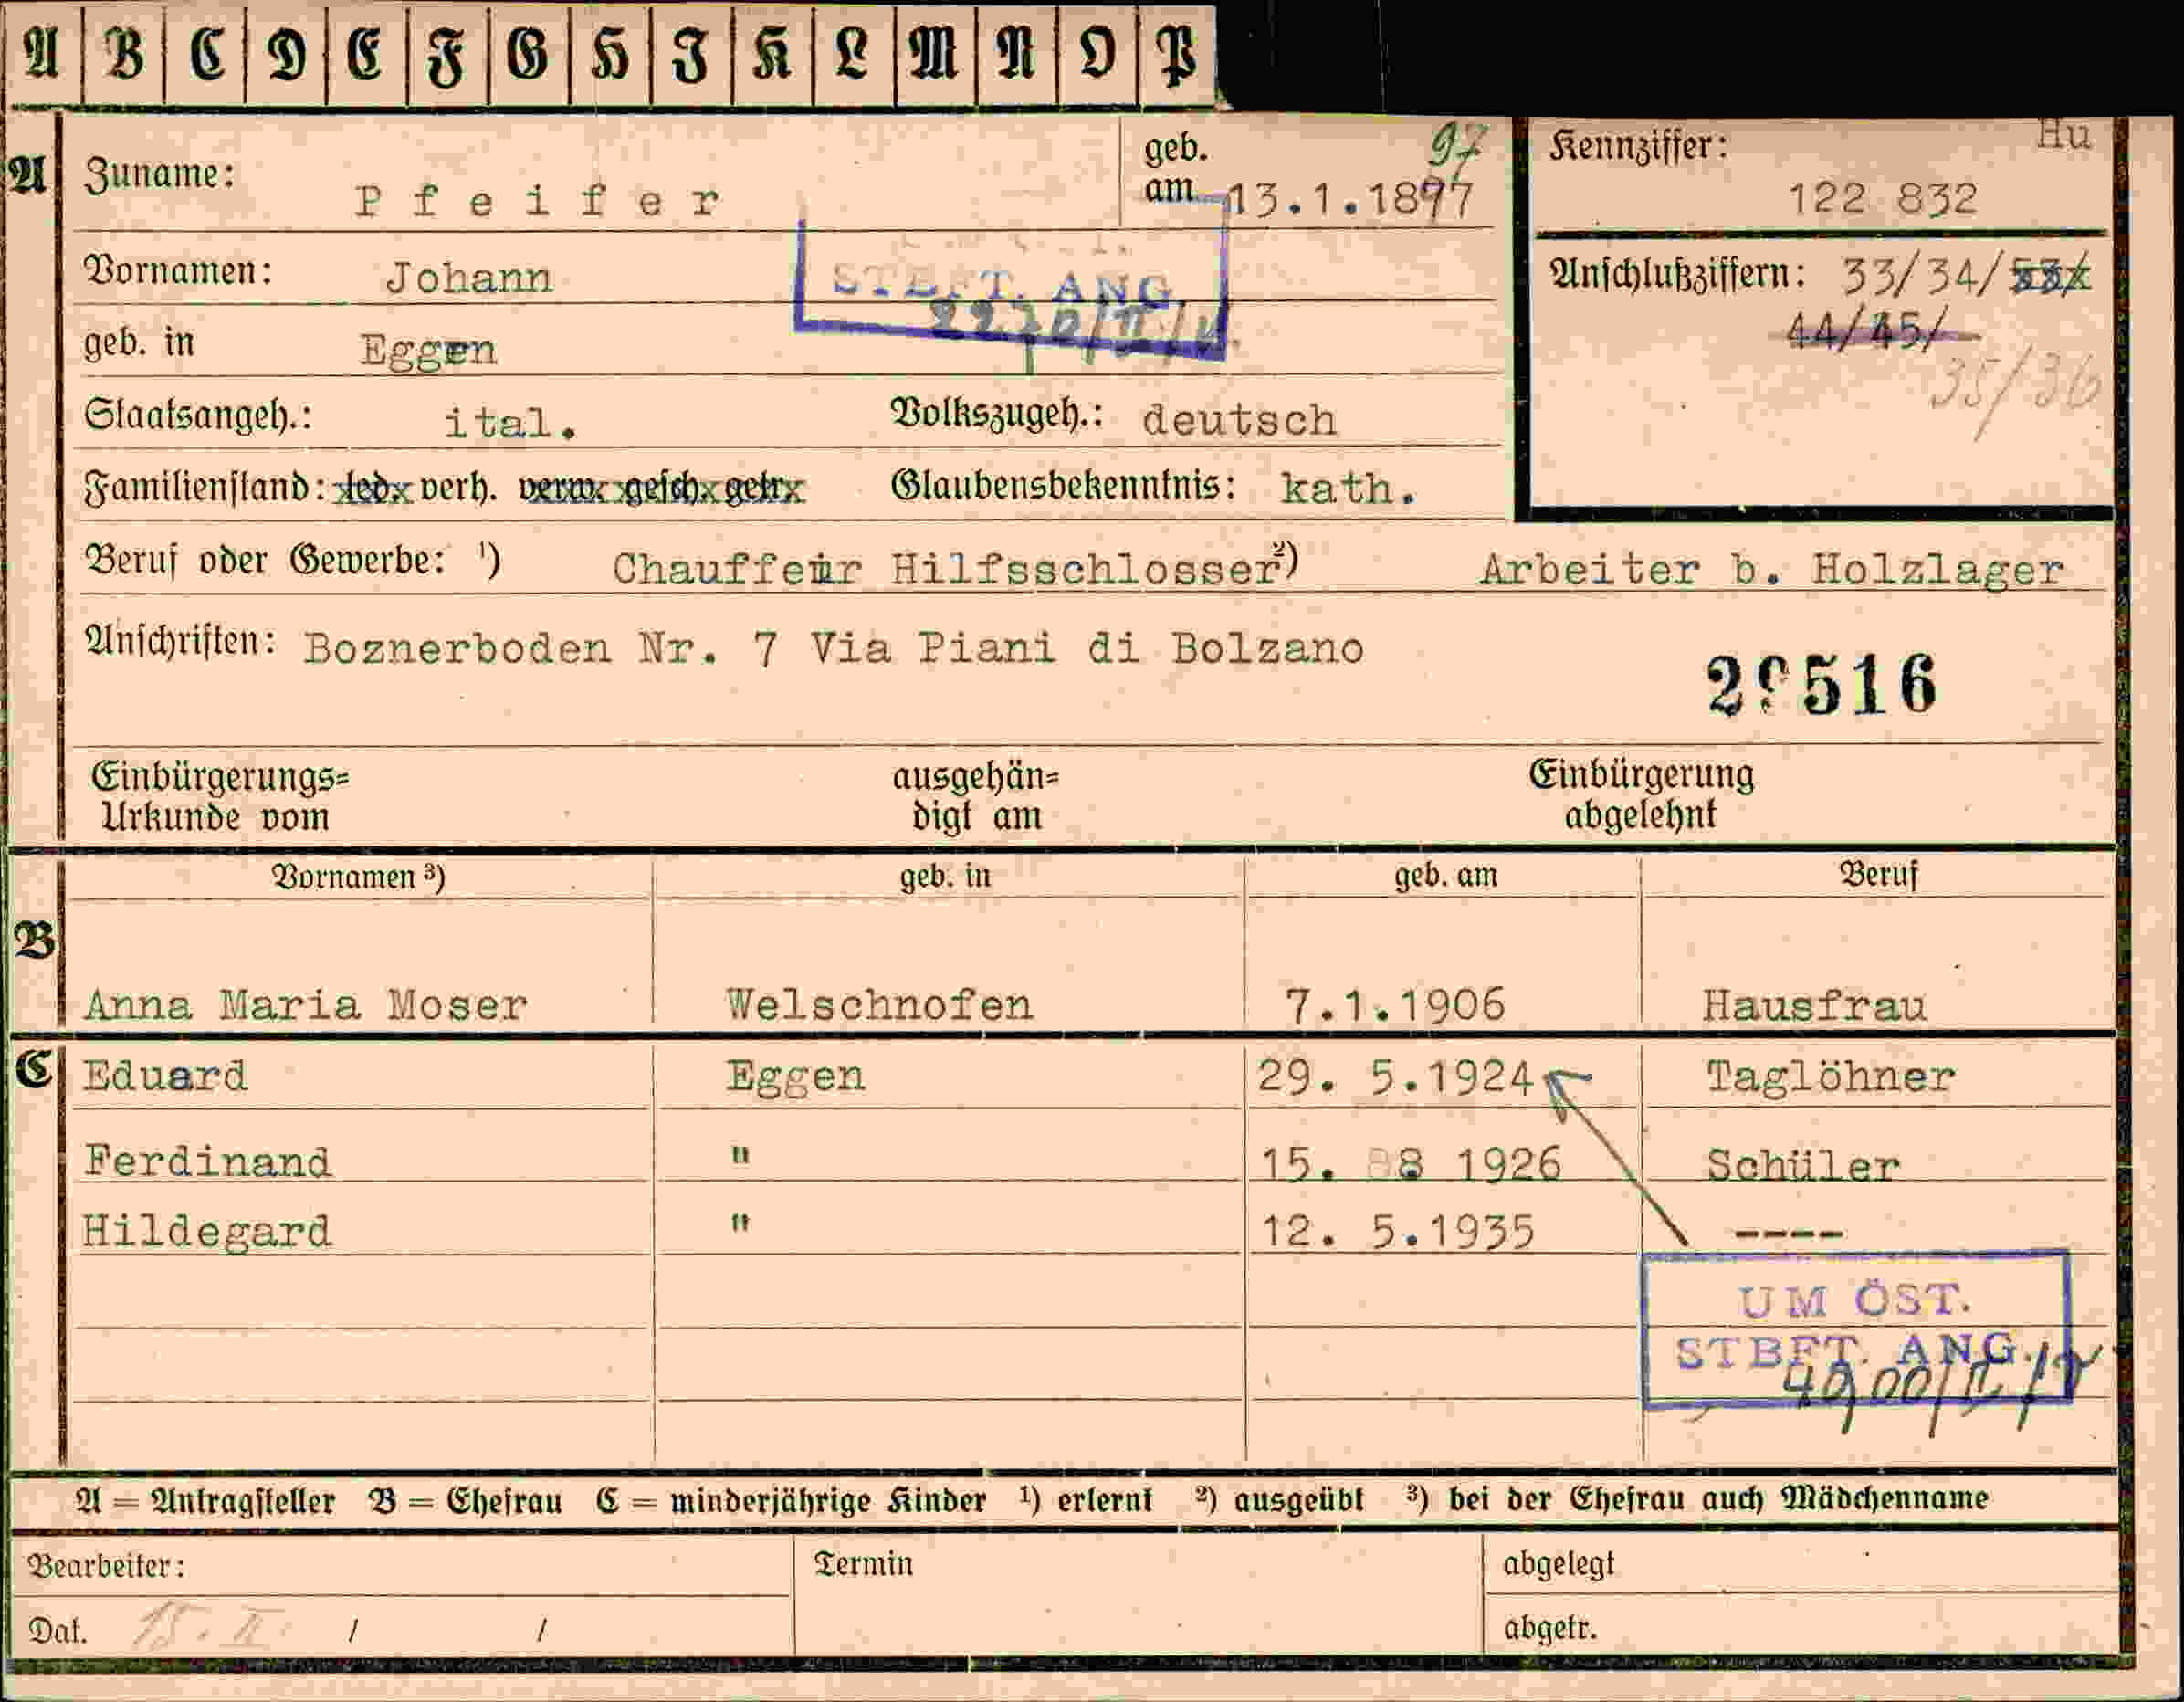 A B C D E F G H I K L M N O P
A Zuname: Pfeifer geb. am 13.1.1897 97
Kennziffer: Hu
122 832
Vornamen: Johann
STBFT. ANG.
Anschlußziffern: 33/34/
44/45/
35/36
geb. in Eggen
Staatsangeh.: ital. Volkszugeh.: deutsch
Familienstand: led. verh. verw. gesch. getr. Glaubensbekenntnis: kath.
Beruf oder Gewerbe: ¹) Chauffeur Hilfsschlosser ²) Arbeiter b. Holzlager
Anschriften: Boznerboden Nr. 7 Via Piani di Bolzano
Einbürgerungs= ausgehän= Einbürgerung
Urkunde vom digt am abgelehnt
Vornamen ³) geb. in geb. am Beruf
B Anna Maria Moser Welschnofen 7.1.1906 Hausfrau
C Eduard Eggen 29. 5.1924 Taglöhner
Ferdinand " 15. 8 1926 Schüler
Hildegard " 12. 5.1935 ----
UM ÖST.
STBFT. ANG.
A = Antragsteller B = Ehefrau C = minderjährige Kinder ¹) erlernt ²) ausgeübt ³) bei der Ehefrau auch Mädchenname
Bearbeiter: Termin abgelegt
Dat. 15. II. / / abgetr.